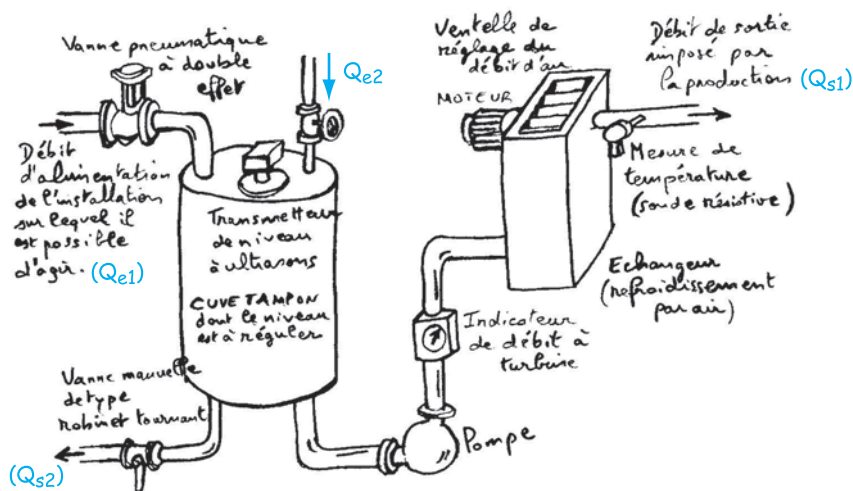 Vanne pneumatique
à double
effet
Qe2
Ventelle de
réglage du
débit d'air
MOTEUR
Débit de sortie
imposé par
la production (Qs1)
Débit
d'alimentation
de l'installation
sur lequel il
est possible
d'agir. (Qe1)
Transmetteur
de niveau
à ultrasons
CUVE TAMPON
dont le niveau
est à réguler
Mesure de
température
(sonde résistive)
Echangeur
(refroidissement
par air)
Indicateur
de débit à
turbine
Vanne manuelle
de type
robinet tournant
Pompe
(Qs2)